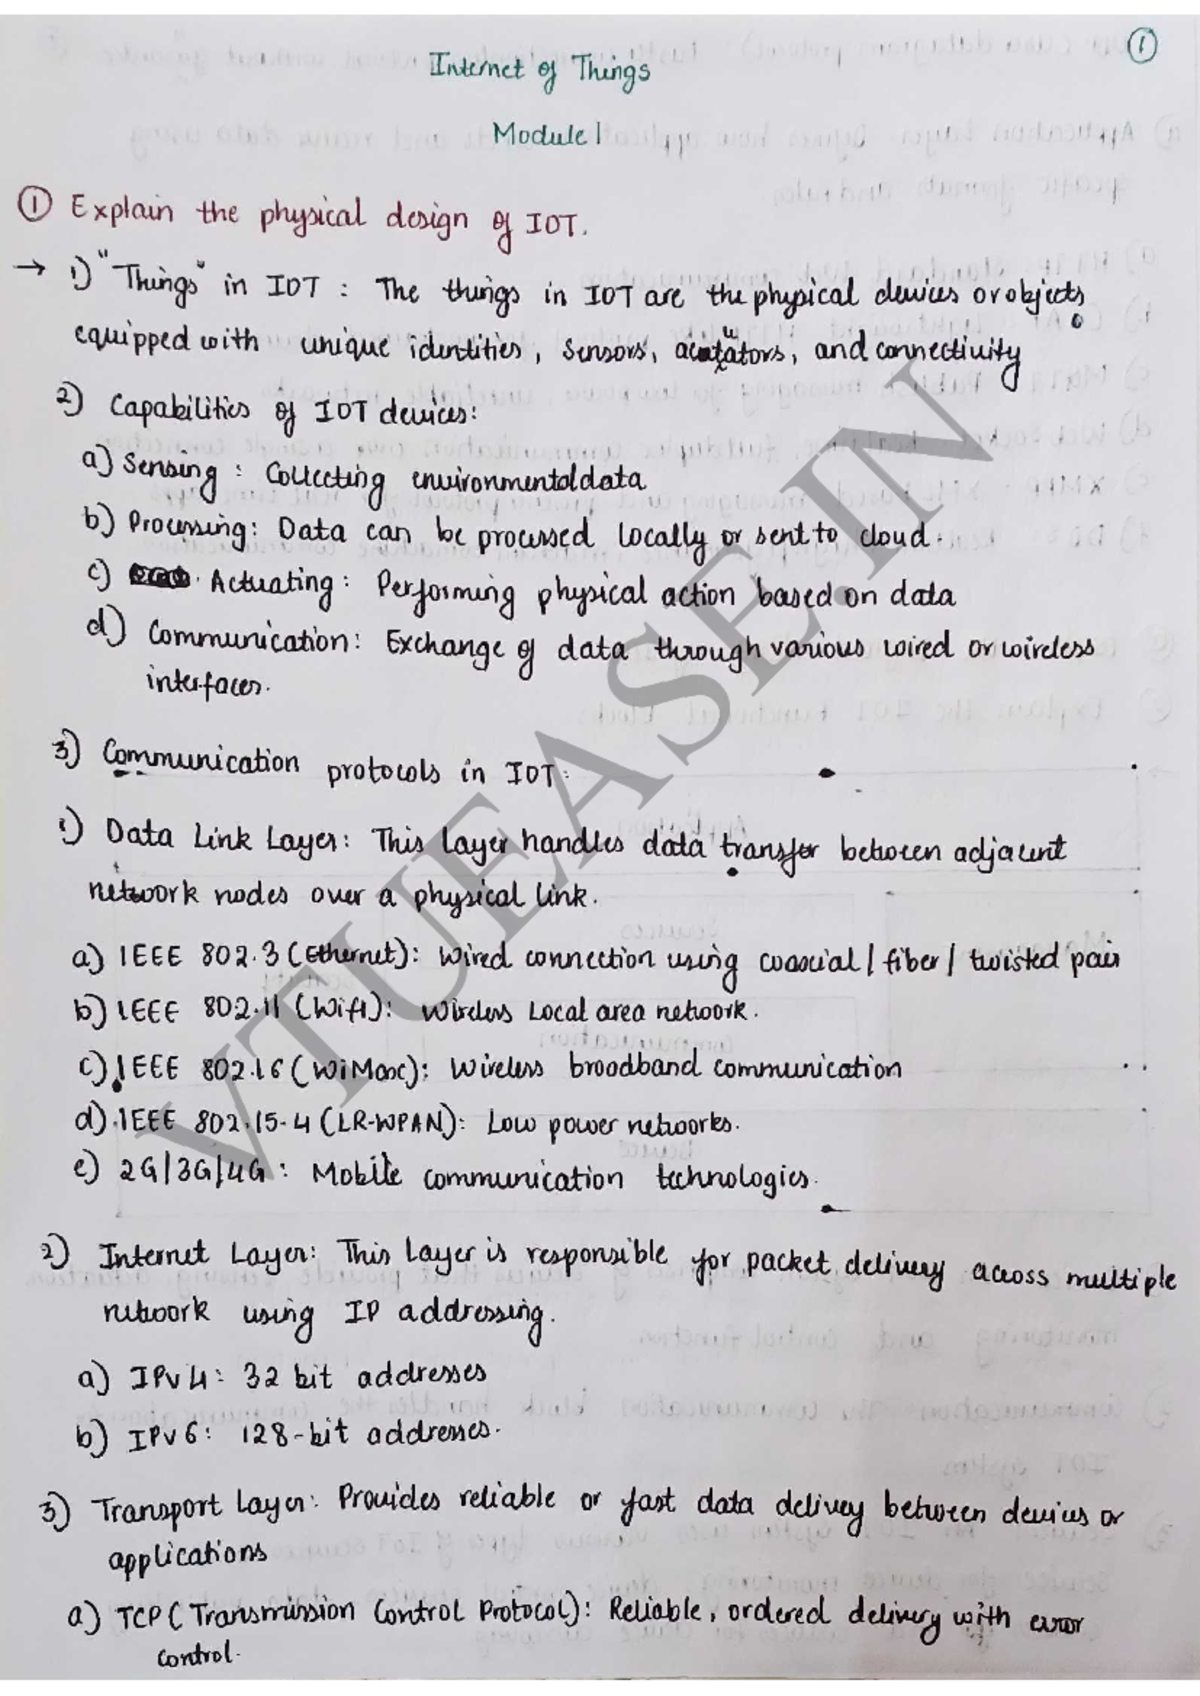 1
Internet of Things
Module 1
1 Explain the physical design of IOT.
→ 1) "Things" in IOT : The things in IOT are the physical devices or objects
equipped with unique identities, sensors, actuators, and connectivity
2) Capabilities of IOT devices:
a) Sensing : Collecting environmental data
b) Processing: Data can be processed locally or sent to cloud.
c) Actuating: Performing physical action based on data
d) Communication: Exchange of data through various wired or wireless
interfaces.
3) Communication protocols in IOT:
1) Data Link Layer: This Layer handles data transfer between adjacent
network nodes over a physical link.
a) IEEE 802.3 (Ethernet): Wired connection using coaxial / fiber / twisted pair
b) IEEE 802.11 (WiFi): Wireless Local area network.
c) IEEE 802.16 (WiMax): Wireless broadband communication
d) IEEE 802.15.4 (LR-WPAN): Low power networks.
e) 2G/3G/4G : Mobile communication technologies.
2) Internet Layer: This Layer is responsible for packet delivery across multiple
network using IP addressing.
a) IPv4: 32 bit addresses
b) IPv6: 128-bit addresses.
3) Transport Layer: Provides reliable or fast data delivey between devices or
applications
a) TCP (Transmission Control Protocol): Reliable, ordered delivery with error
control.
VTUEASE.IN